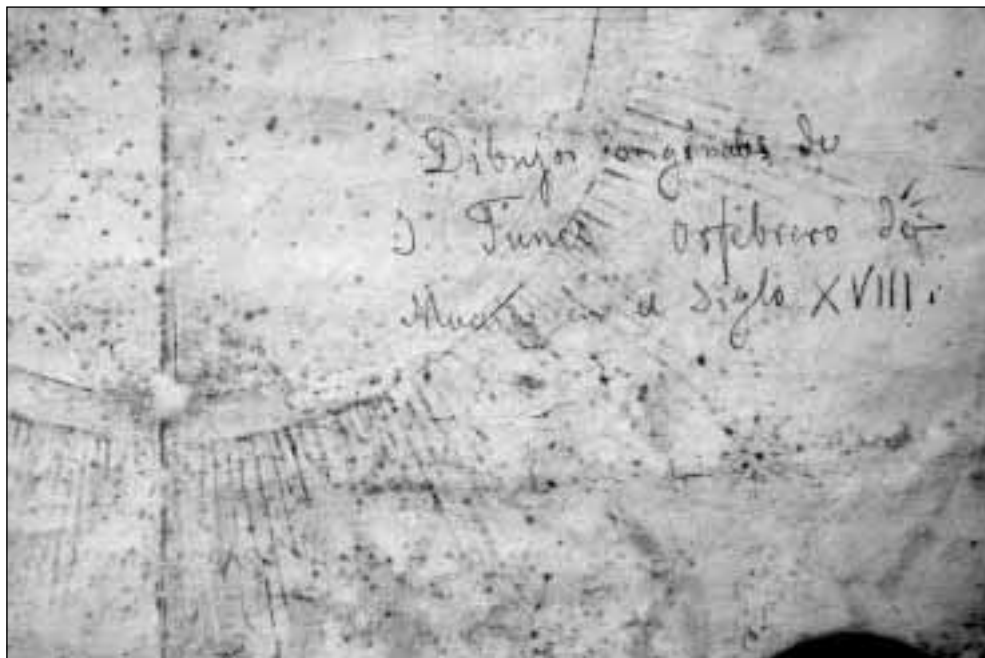 Dibujos originales de
J Funes orfebrero de
Murcia en el siglo XVIII.